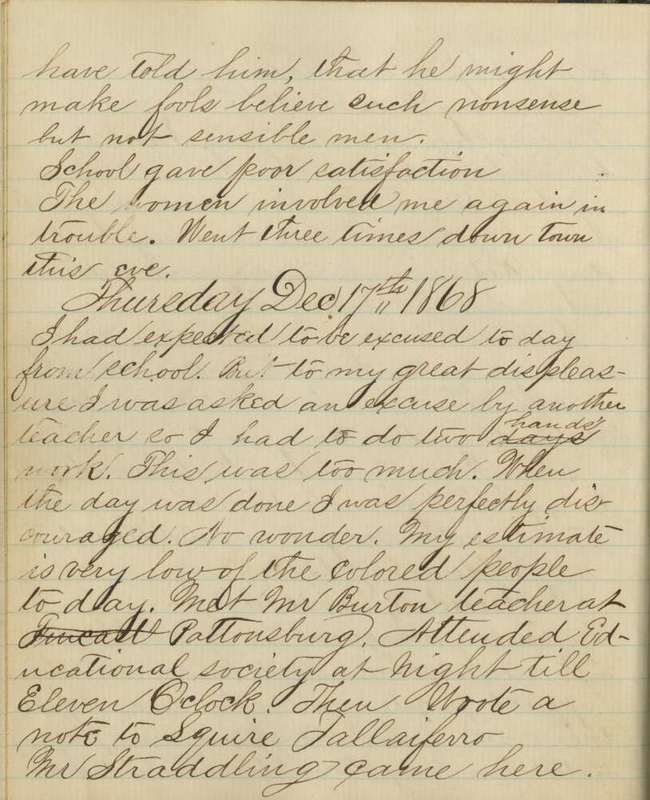 have told him, that he might
make fools believe such nonsense
but not sensible men.
School gave poor satisfaction
The women involved me again in
trouble. Went three times down town
this eve.
Thursday Dec 17th 1868
I had expected to be excused to day
from school. But to my great displeas-
ure I was asked an excuse by another
teacher so I had to do two days hands
work. This was too much. When
the day was done I was perfectly dis
couraged. No wonder. My estimate
is very low of the colored people
to day. Met Mr Burton teacher at
Fincastl Pattonsburg. Attended Ed-
ucational society at Night till
Eleven O'clock. Then Wrote a
note to Squire Tallaiferro
Mr Straddling came here.